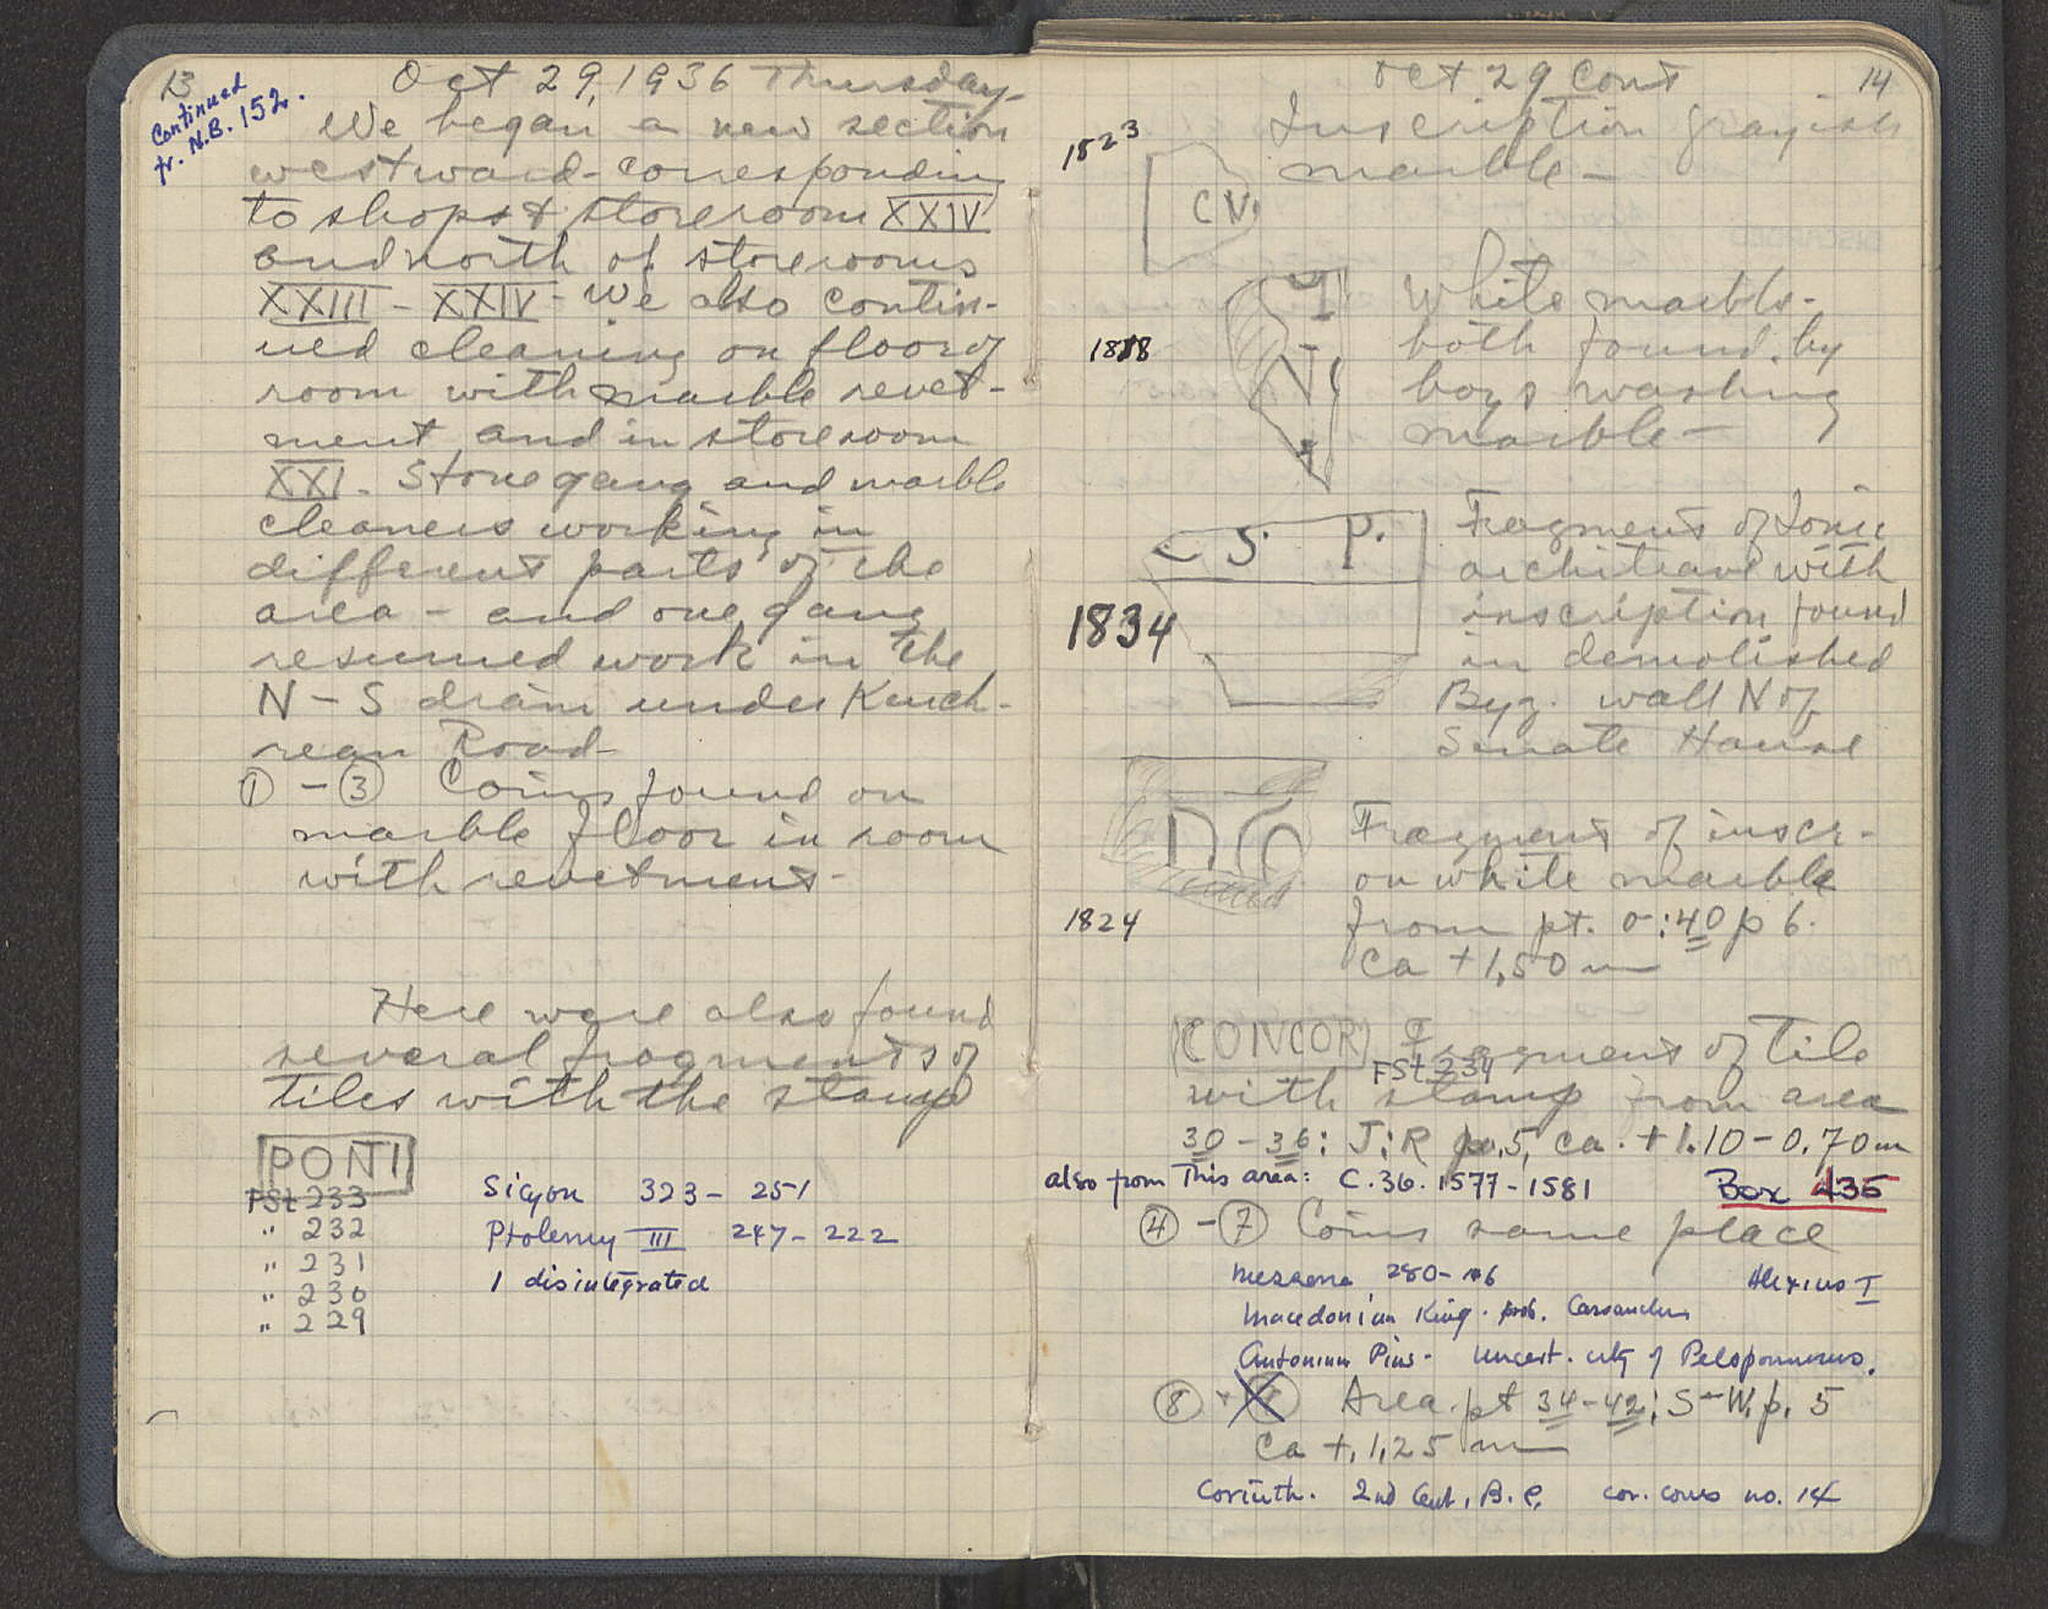 13
Continued
fr. N.B. 152.
Oct 29, 1936 Thursday-
We began a new section
westward - corresponding
to shops & storeroom XXIV
and north of storerooms
XXIII - XXIV - We also contin-
ued cleaning on floor of
room with marble revet-
ment and in storeroom
XXI - Stone gang and marble
cleaners working in
different parts of the
area - and one gang
resumed work in the
N - S drain under Kench-
rean Road -
① - ③ Coins found on
marble floor in room
with revetment -
Here were also found
several fragments of
tiles with the stamp
PONTI
FSt 233
" 232
" 231
" 230
" 229
Sicyon 323 - 251
Ptolemy III 247 - 222
1 disintegrated
Oct 29 Cont
14
1823
Inscription grayish
marble -
CN
1818
I
N
White marble -
both found by
boys washing
marble -
S. P.
1834
Fragment of Ionic
architrave with
inscription found
in demolished
Byz. wall N of
Senate House
1824
Fragment of inscr-
on white marble
from pt. σ:40 p 6.
Ca + 1,50 m
CONCOR Fragment of Tile
FSt 234
with stamp from area
30 - 36: J:R p. 5, ca. + 1.10 - 0.70 m
also from this area: C. 36. 1577 - 1581 Box 435
④ - ⑦ Coins same place
Messene 280 - 146 Alexius I
Macedonian King. prob. Cassander
Antoninus Pius - uncert. city of Peloponnesus.
⑧ + Area pt 34 - 42; S - W, p. 5
Ca +, 1,25 m
Corinth. 2nd Cent. B.C. Cor. coins no. 14